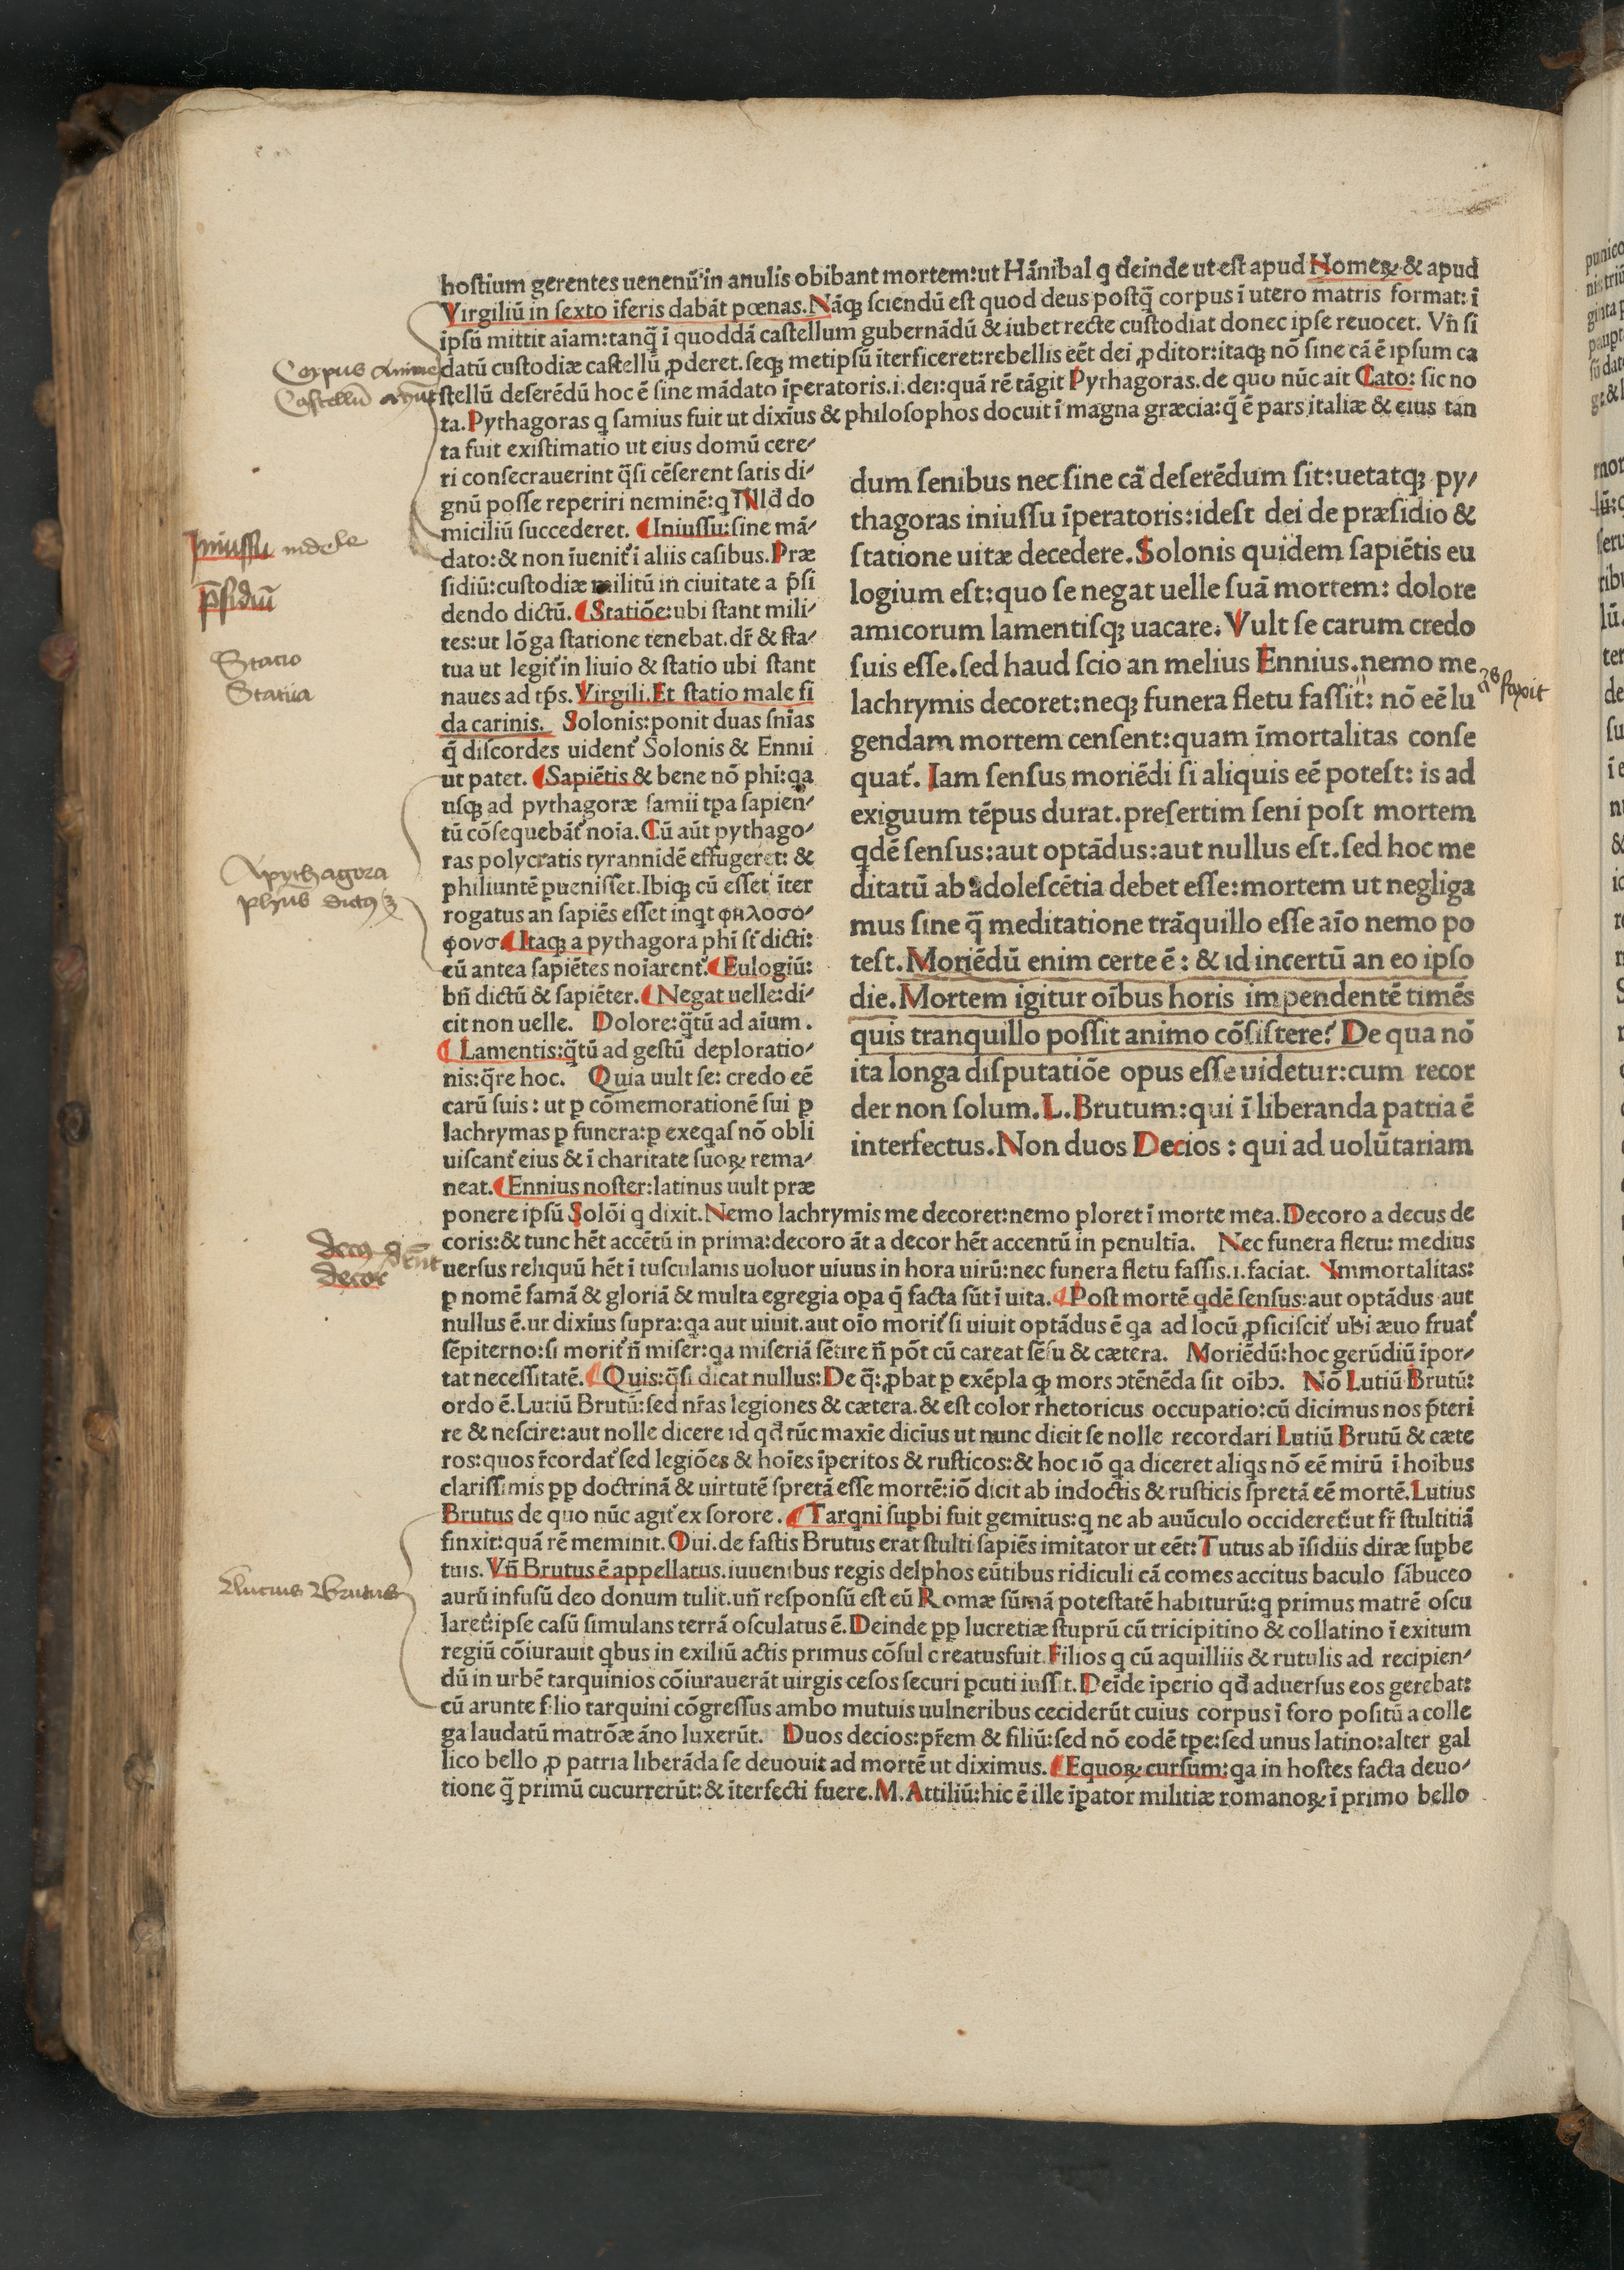 hostium gerentes uenenũ in anulis obibant mortem:ut Hãnibal ꝗ deinde ut est apud Homeꝝ & apud
Virgiliũ in sexto ĩferis dabãt pœnas. Nãqꝫ sciendũ est quod deus postq̃ corpus ĩ utero matris format: ĩ
ipsũ mittit aĩam:tanq̃ ĩ quoddã castellum gubernãdũ & iubet recte custodiat donec ipse reuocet. Vñ si
datũ custodiæ castellũ ꝓderet. seqꝫ metipsũ ĩterficeret:rebellis eẽt dei ꝓditor:itaqꝫ nõ sine cã ẽ ipsum ca
stellũ deserẽdũ hoc ẽ sine mãdato ĩperatoris.i.dei:quã rẽ tãgit Pythagoras.de quo nũc ait Cato: sic no
ta.Pythagoras ꝗ samius fuit ut dixĩus & philosophos docuit ĩ magna græcia:q̃ ẽ pars italiæ & eius tan
ta fuit existimatio ut eius domũ cere/
ri consecrauerint q̃si cẽserent satis di/
gnũ posse reperiri neminẽ:ꝗ ĩ illđ do
miciliũ succederet. Iniussu:sine mã/
dato:& non ĩuenit᷑ ĩ aliis casibus.Præ
sidiũ:custodiæ militũ in ciuitate a p̃si
dendo dictũ. Statiõe:ubi stant mili/
tes:ut lõga statione tenebat.dr̃ & sta/
tua ut legit᷑ in liuio & statio ubi stant
naues ad tp̃s. Virgili.Et statio male fi
da carinis. Solonis:ponit duas sñias
q̃ discordes uident᷑ Solonis & Ennii
ut patet. Sapiẽtis & bene nõ phĩ:ꝗa
usqꝫ ad pythagoræ samii tꝑa sapien/
tũ cõsequebãt᷑ noĩa.Cũ aũt pythago/
ras polycratis tyrannidẽ effugeret: &
philiuntẽ ꝑuenisset.Ibiqꝫ cũ esset ĩter
rogatus an sapiẽs esset inꝗt φηλοσό/
φονσ Itaqꝫ a pythagora phĩ st᷑ dicti:
cũ antea sapiẽtes noĩarent᷑. Eulogiũ:
bñ dictũ & sapiẽter. Negat uelle:di/
cit non uelle. Dolore:q̃tũ ad aĩum.
Lamentis:q̃tũ ad gestũ deploratio/
nis:q̃re hoc. Quia uult se: credo eẽ
carũ suis: ut ꝑ cõmemorationẽ sui ꝑ
lachrymas ꝑ funera:ꝑ exeꝗas nõ obli
uiscant᷑ eius & ĩ charitate suoꝝ rema/
neat. Ennius noster:latinus uult præ
dum senibus nec sine cã deserẽdum sit:uetatqꝫ py/
thagoras iniussu ĩperatoris:idest dei de præsidio &
statione uitæ decedere. Solonis quidem sapiẽtis eu
logium est:quo se negat uelle suã mortem: dolore
amicorum lamentisqꝫ uacare. Vult se carum credo
suis esse.sed haud scio an melius Ennius.nemo me
lachrymis decoret:neqꝫ funera fletu fassit: nõ eẽ lu
gendam mortem censent:quam ĩmortalitas conse
quat᷑. Iam sensus moriẽdi si aliquis eẽ potest: is ad
exiguum tẽpus durat.presertim seni post mortem
ꝗdẽ sensus:aut optãdus:aut nullus est.sed hoc me
ditatũ ab adolescẽtia debet esse:mortem ut negliga
mus sine q̃ meditatione trãquillo esse aĩo nemo po
test.Moriẽdũ enim certe ẽ: & id incertũ an eo ipso
die.Mortem igitur oĩbus horis impendentẽ timẽs
quis tranquillo possit animo cõsistere? De qua nõ
ita longa disputatiõe opus esse uidetur:cum recor
der non solum.L.Brutum:qui ĩ liberanda patria ẽ
interfectus.Non duos Decios: qui ad uolũtariam
ponere ipsũ Solõi ꝗ dixit.Nemo lachrymis me decoret:nemo ploret ĩ morte mea.Decoro a decus de
coris:& tunc hẽt accẽtũ in prima:decoro ãt a decor hẽt accentũ in penultĩa. Nec funera fletu: medius
uersus reliquũ hẽt ĩ tusculanis uoluor uiuus in hora uirũ:nec funera fletu fassis.i.faciat. Immortalitas:
ꝑ nomẽ famã & gloriã & multa egregia oꝑa q̃ facta sũt ĩ uita. Post mortẽ ꝗdẽ sensus:aut optãdus aut
nullus ẽ.ut dixĩus supra:ꝗa aut uiuit.aut oĩo morit᷑ si uiuit optãdus ẽ ꝗa ad locũ ꝓficiscit᷑ ubi æuo fruat᷑
sẽpiterno:si morit᷑ ñ miser:ꝗa miseriã sẽtire ñ põt cũ careat sẽsu & cætera. Moriẽdũ:hoc gerũdiũ ĩpor/
tat necessitatẽ. Quis:q̃si dicat nullus:De q̃:ꝓbat ꝑ exẽpla ꝙ mors ↄtẽnẽda sit oĩbↄ. Nõ Lutiũ Brutũ:
ordo ẽ.Lutiũ Brutũ:sed nr̃as legiones & cætera.& est color rhetoricus occupatio:cũ dicimus nos p̃teri
re & nescire:aut nolle dicere id qđ tũc maxĩe dicĩus ut nunc dicit se nolle recordari Lutiũ Brutũ & cæte
ros:quos r̃cordat᷑ sed legiões & hoĩes ĩperitos & rusticos:& hoc iõ ꝗa diceret aliꝗs nõ eẽ mirũ ĩ hoibus
clarissimis ꝑp doctrinã & uirtutẽ spretã esse mortẽ:iõ dicit ab indoctis & rusticis spretã eẽ mortẽ.Lutius
Brutus de quo nũc agit᷑ ex sorore. Tarꝗni suꝑbi fuit gemitus:ꝗ ne ab auũculo occideret᷑:ut fr̃ stultitiã
finxit:quã rẽ meminit.Oui.de fastis Brutus erat stulti sapiẽs imitator ut eẽt:Tutus ab ĩsidiis diræ suꝑbe
tuis. Vñ Brutus ẽ appellatus.iuuenibus regis delphos eũtibus ridiculi cã comes accitus baculo sãbuceo
aurũ infusũ deo donum tulit.uñ responsũ est eũ Romæ sũmã potestatẽ habiturũ:ꝗ primus matrẽ oscu
laret᷑:ipse casũ simulans terrã osculatus ẽ.Deinde ꝑp lucretiæ stuprũ cũ tricipitino & collatino ĩ exitum
regiũ cõiurauit ꝗbus in exiliũ actis primus cõsul creatusfuit.Filios ꝗ cũ aquilliis & rutulis ad recipien/
dũ in urbẽ tarquinios cõiurauerãt uirgis cesos securi ꝑcuti iussit.Deĩde iperio qđ aduersus eos gerebat:
cũ arunte filio tarquini cõgressus ambo mutuis uulneribus ceciderũt cuius corpus ĩ foro positũ a colle
ga laudatũ matrõæ ãno luxerũt. Duos decios:pr̃em & filiũ:sed nõ eodẽ tꝑe:sed unus latino:alter gal
lico bello ꝓ patria liberãda se deuouit ad mortẽ ut diximus. Equoꝝ cursum:ꝗa in hostes facta deuo/
tione q̃ primũ cucurrerũt:& ĩterfecti fuere.M.Attiliũ:hic ẽ ille ĩpator militiæ romanoꝝ ĩ primo bello
Corpus anime
Castellũ
Iniussu indecle
p̃sidiũ
Statio
Statua
faxit
A pythagora
decor
Lucius Brutus